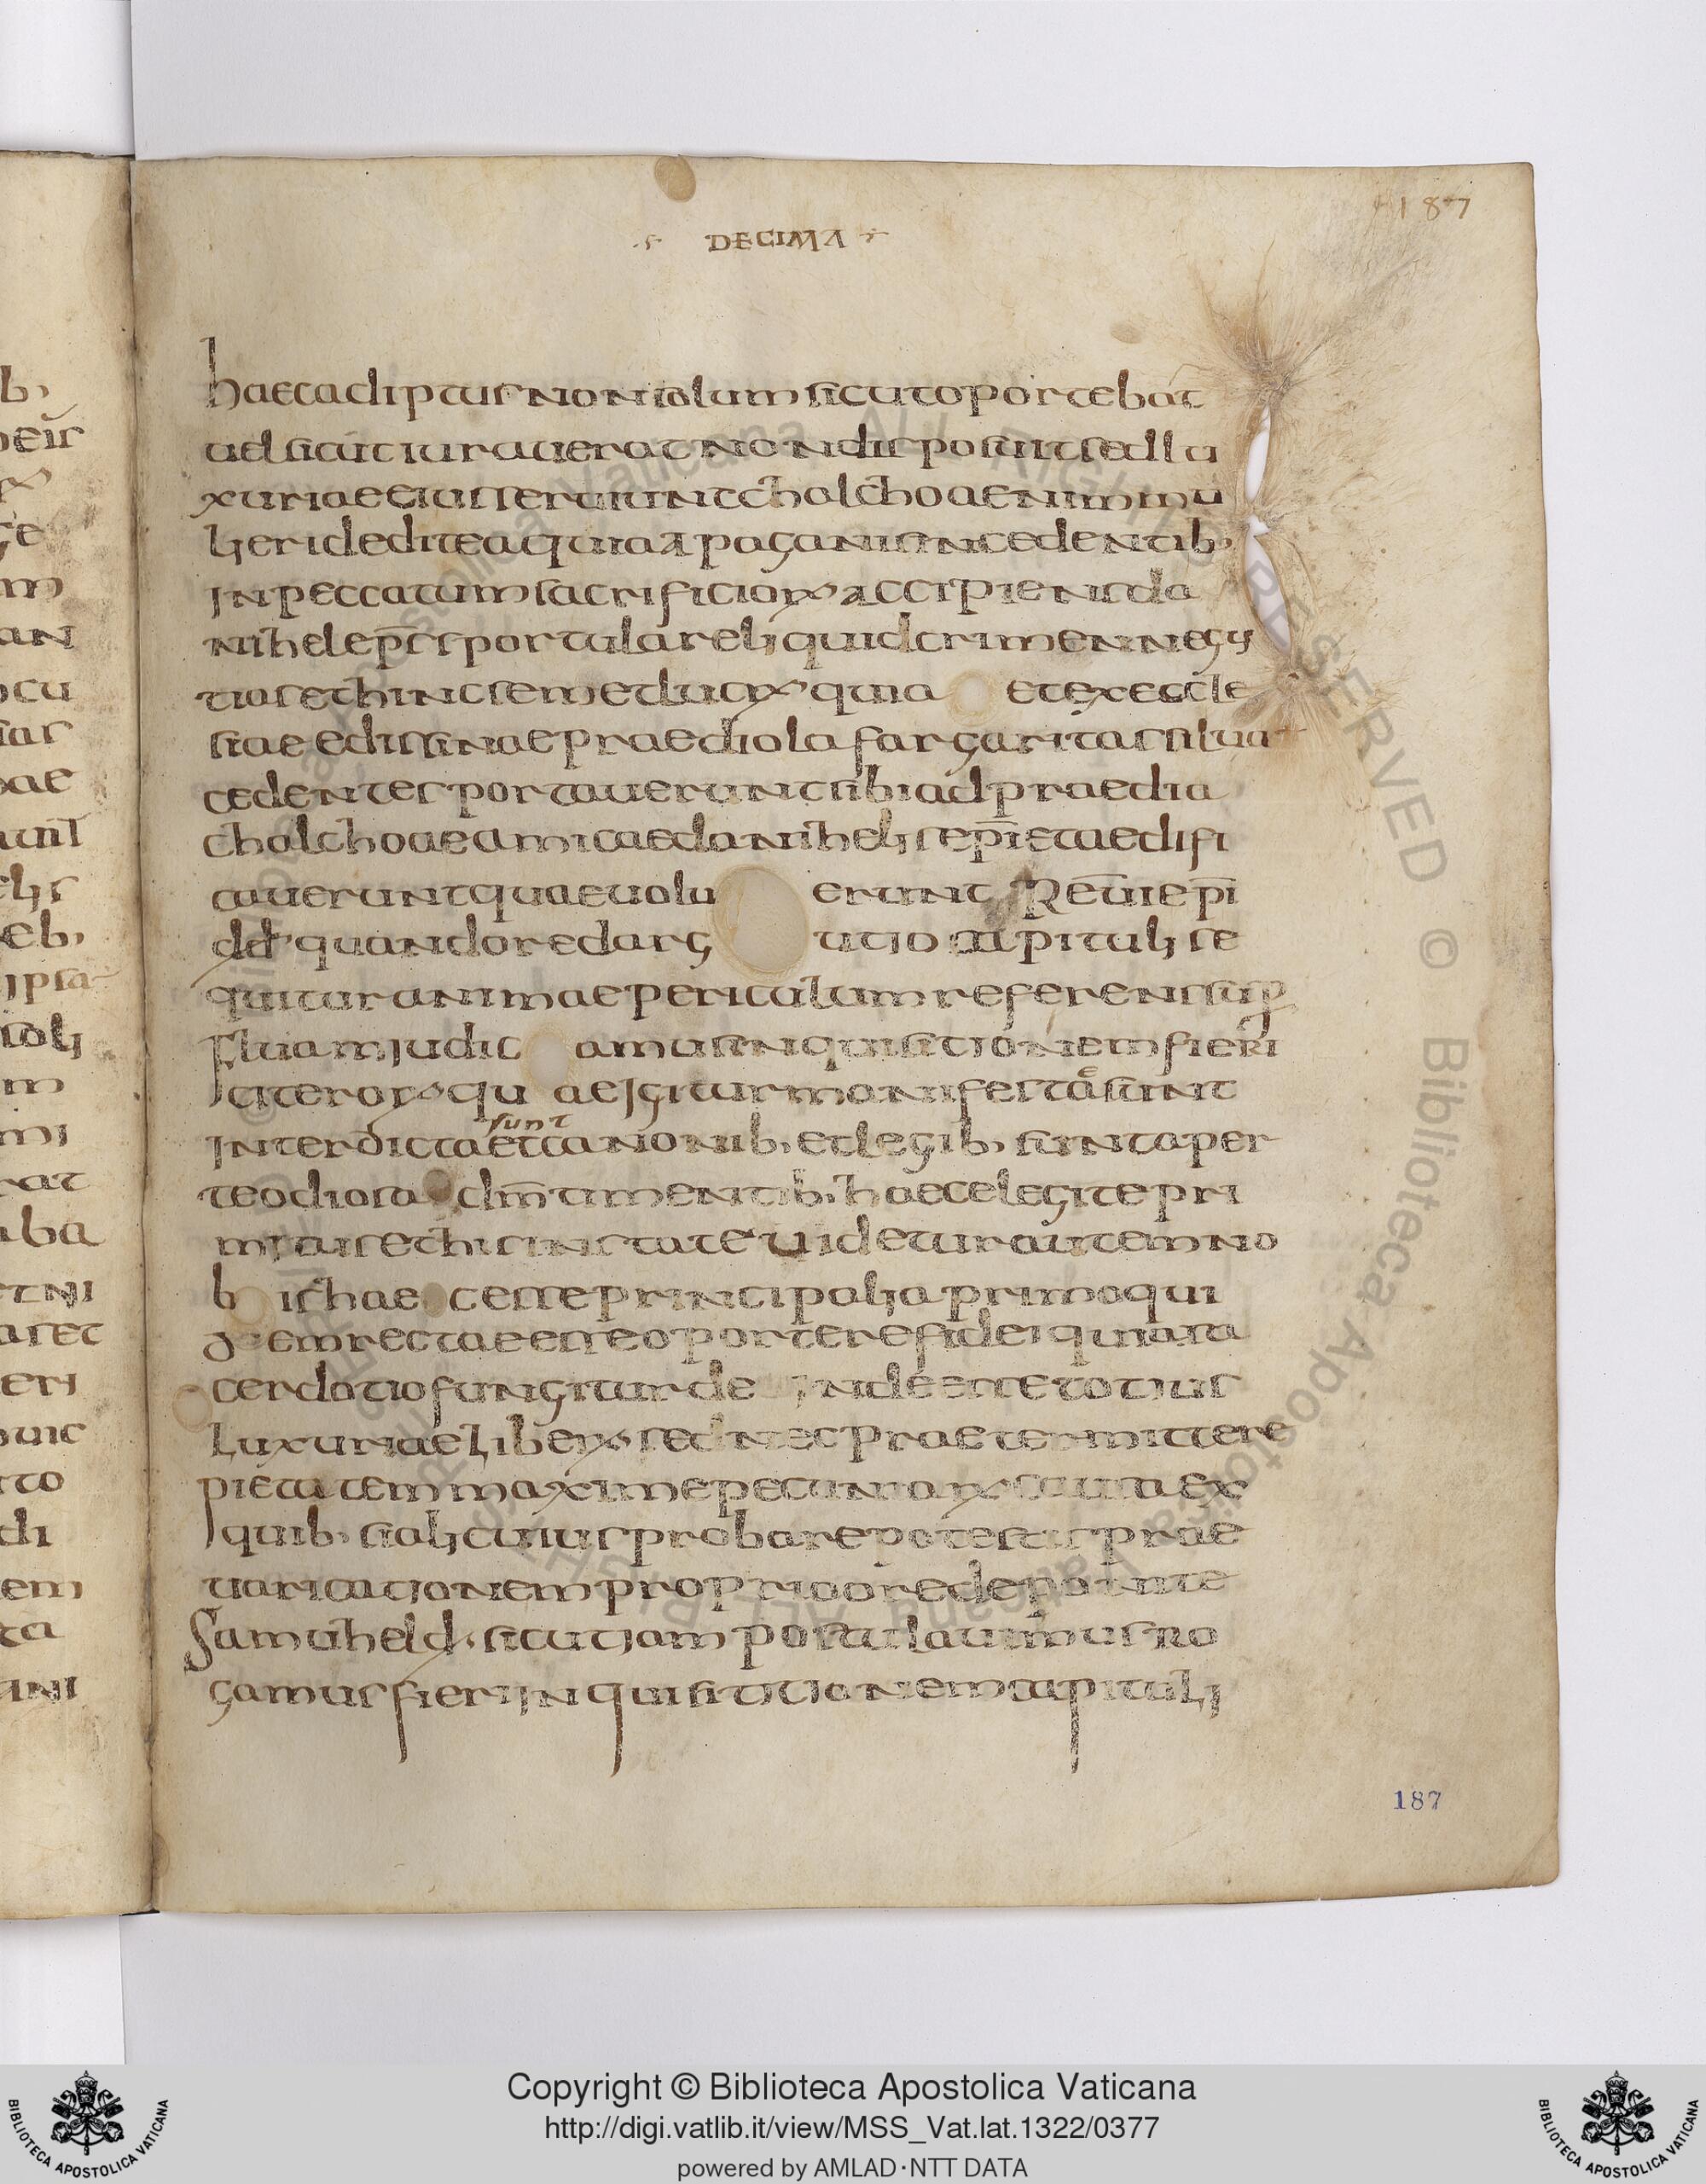 187
DECIMA
haecadeptusnonsolumsicutoportebat
uelsicutiuraueratnondisposuitsedlu
xuriaeeiusseruiuntchalchoaenimmu
lieridediteaquiaapaganisincedentib·
inpeccatumsacrificiorumaccipiensda
nihelepscsportulasreliquidcrimennegu
tiasethincsemetlucrum quia etexeccle
siaeedissinaepraediolasargaritassilua
cedentesportaueruntsibiadpraedia
chalchoaeamicaedanihelisepietaedifi
caueruntquaeuolu erunt Reuiepi
dd·quandoredarg utio capitulise
quituranimaepericulumreferenssup
siluamiudic amusinquisitionemfieri
citerorumqu aeigiturmanifestaesunt
sunt
interdictaetcanonib·etlegib·suntaper
teodiosa dmtimentib·haecelegitepri
mitusethisinstate uideturautemno
b ishae cesseprincipaliaprimoqui
demrectaeesseoporterefideiquiasa
cerdotiofungiturde indeessetotius
luxuriaeliberumsednecpraetermittere
pietatemmaximepecuniarumcausaex
quib·sialicuiusprobarepotestisprae
uaricationempropriooredeponite
Samuheld·sicutiampostulauimusro
gamusfieriinquisitionemcapituli
187
b·
eb·
em
an
cu
ae
lis
ipsa
m
mi
rat
aba
tni
aset
eri
uic
to
di
em
ta
ani
Copyright © Biblioteca Apostolica Vaticana
http://digi.vatlib.it/view/MSS_Vat.lat.1322/0377
powered by AMLAD·NTT DATA
BIBLIOTECA APOSTOLICA VATICANA
BIBLIOTECA APOSTOLICA VATICANA